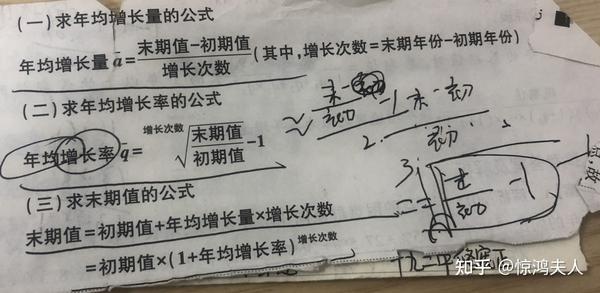 (一)求年均增长量的公式
年均增长量a̅=末期值-初期值/增长次数(其中,增长次数=末期年份-初期年份)
(二)求年均增长率的公式
年均增长率q=增长次数√末期值/初期值-1
(三)求末期值的公式
末期值=初期值+年均增长量×增长次数
=初期值×(1+年均增长率)增长次数
末-初
初
-1
2.
末-初
初
3.
末
初
-1
知乎 @惊鸿夫人